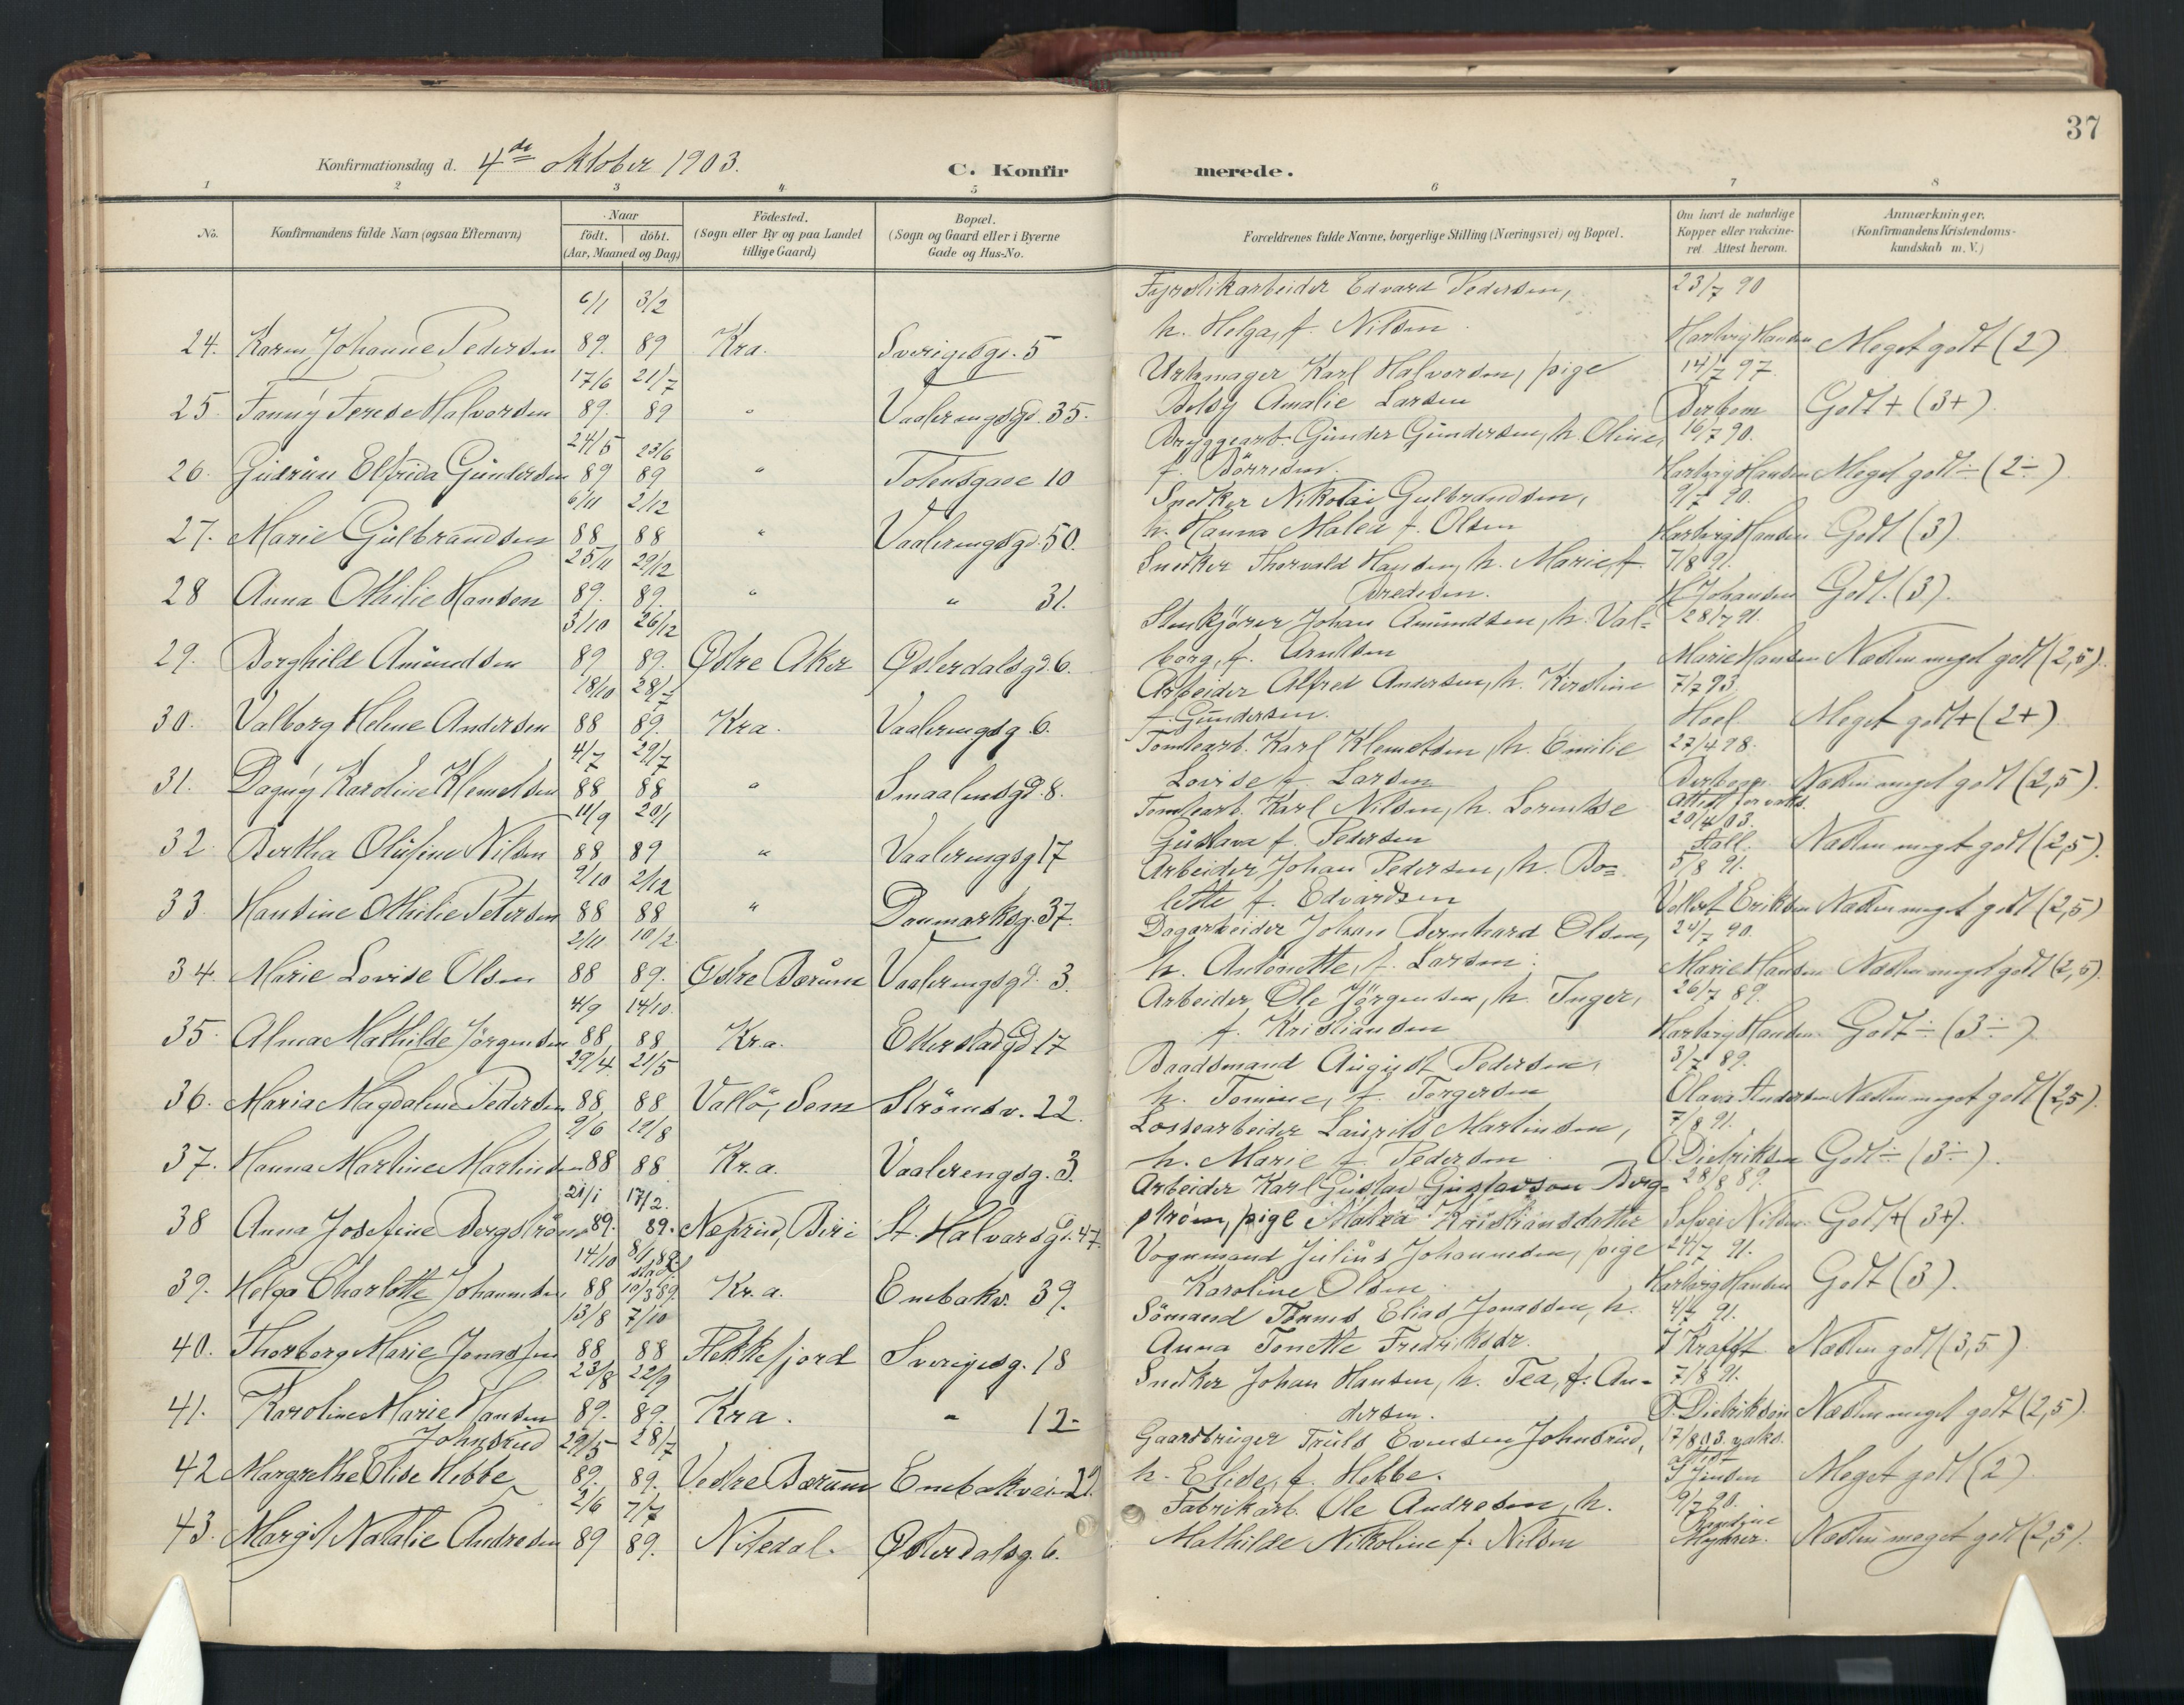 37
Konfirmationsdag d. 4de oktober 1903. C. Konfirmerede.
1 2 3 4 5 6 7 8
No. Konfirmandens fulde Navn (ogsaa Efternavn) Naar födt. döbt. (Aar, Maaned og Dag) Födested. (Sogn eller By og paa Landet tillige Gaard) Bopæl. (Sogn og Gaard eller i Byerne Gade og Hus-No. Forældrenes fulde Navne, borgerlige Stilling (Næringsvei) og Bopæl. Om havt de naturlige Kopper eller vakcineret. Attest herom. Anmærkninger. (Konfirmandens Kristendomskundskab m. V.)
6/1 3/2 Edvard Pedersen, 23/7 90
24. Karen Johanne Pedersen 89. 89 Kra. Sverigesgd. 5 h. Helga, f. Nilsen Hartvig Hansen Meget godt (2)
17/6 21/7 Urtemager Karl Halvorsen, pige 14/7 97.
25. Fanny Terese Halvorsen 89. 89 " Vaalerengsgd. 35. Betsy Amalie Larsen Godt + (3+)
24/5 23/6 Bryggearb. Gunder Gundersen, h. Oline, 16/7 90.
26. Gudrun Elfrida Gundersen 89 89 " Totensgade 10 f. Börresen. Hartvig Hansen Meget godt ÷ (2÷)
6/11 2/12 Snedker Nikolai Gulbrandsen, 9/7 90.
27. Marie Gulbrandsen 88 88 " Vaalerengsgd. 50. h. Hanna Malea f. Olsen Hartvig Hansen Godt (3)
25/11 29/12 Snedker Thorvald Hansen, h. Marie, f. 7/8 91.
28 Anna Othilie Hansen 89. 89. " " 31. Bredesen. Johansen Godt. (3).
3/10 26/12 Stenkjörer Johan Amundsen, h. Val= 28/7 91.
29. Borghild Amundsen 89 89. Østre Aker Østerdalsgd. 6. borg, f. Arntsen Marie Hansen Næsten meget godt (2,5).
18/10 28/7 Arbeider Alfred Andersen, h. Kirstine 7/7 93.
30. Valborg Helene Andersen 88 89. Kra. Vaalerengsg. 6. f. Gundersen. Hoel. Meget godt + (2+)
4/7 29/7 Tomtearb. Karl Klemetsen, h. Emilie 27/4 98.
31. Dagny Karoline Klemetsen 88 88 " Smaalensgd. 8. Lovise f. Larsen Næsten meget godt (2,5).
11/9 20/1 Tomtearb. Karl Nilsen, h. Lorentse Attest for vaks. 20/4 03.
32. Bertha Olufine Nilsen 88 89 " Vaalerengsg 17 Gustava f. Pedersen Stall. Næsten meget godt (2,5).
9/10 2/12 Arbeider Johan Pedersen, h. Bo= 5/8 91.
33. Hansine Othilie Petersen 88 88 " Danmarksg. 37. lette f. Edvardsen Volkert Eriksen Næsten meget godt (2,5)
2/11 10/2. Dagarbeider Johan Bernhard Olsen, 24/7 90.
34. Marie Lovise Olsen 88 89. Østre Bærum Vaalerengsgd. 3. h. Antonette, f. Larsen. Marie Hansen Næsten meget godt (2,5).
4/9 14/10. Arbeider Ole Jörgensen, h. Inger, 26/7 89.
35. Alma Mathilde Jörgensen 88 88 Kra. Etterstadgd 17 f. Kristiansen Hartvig Hansen Godt ÷ (3÷)
29/4. 21/5 Baadsmand August Pedersen, 3/7 89.
36. Maria Magdalene Pedersen 88 88 Vallö, Sem Strömsv. 22. h. Tomine, f. Torgersen Olava Andersen Næsten meget godt (2,5).
9/6 12/8 Lossearbeider Laurits Martinsen, 7/8 91.
37. Hanna Martine Martinsen 88 88 Kra. Vaalerengsg. 3. h. Marie f. Pedersen O. Didriksen Godt ÷ (3÷).
21/1 17/2. Arbeider Karl Gustav Gustavson Berg- 28/8 89.
38 Anna Josefine Bergström 89. 89. Biri St. Halvarsgd. 47. ström, pige Matea Kristiansdatter Solvei Nilsen. Godt + (3+).
14/10 8/1 89 Vognmand Julius Johannesen, pige 24/7 91.
39. Helga Charlotte Johannesen 88 stad. 10/3 89. Kr.a. Enebakv. 39. Karoline Olsen. Hartvig Hansen Godt (3).
13/8 7/10 Sömand Tönnes Elias Jonassen, h. 4/7 91.
40. Thorborg Marie Jonassen 88 88 Flekkefjord Sverigesg. 18 Anna Tonette Fredriksdr. J Krafft Næsten godt (3,5)
23/8 22/9 Snedker Johan Hansen, h. Tea, f. An- 7/8 91.
41. Karoline Marie Hansen 89. 89. Kra. " 12- dersen. O. Didriksen Næsten meget godt (2,5).
Johnsrud 29/5 28/7 Gaardbruger Truls Evensen Johnsrud, 17/8 03. vaks. attest
42 Margrethe Elise Hebbe 89. 89. Vestre Bærum Enebakvei. 29. h. Elise, f. Hebbe. Meget godt (2)
2/6 7/7 Fabrikarb. Ole Andresen, h. 9/7 90.
43. Margit Natalie Andresen 89 89. Nitedal. Østerdalsg. 6. Mathilde Nikoline f. Nilsen Næsten meget godt (2,5).